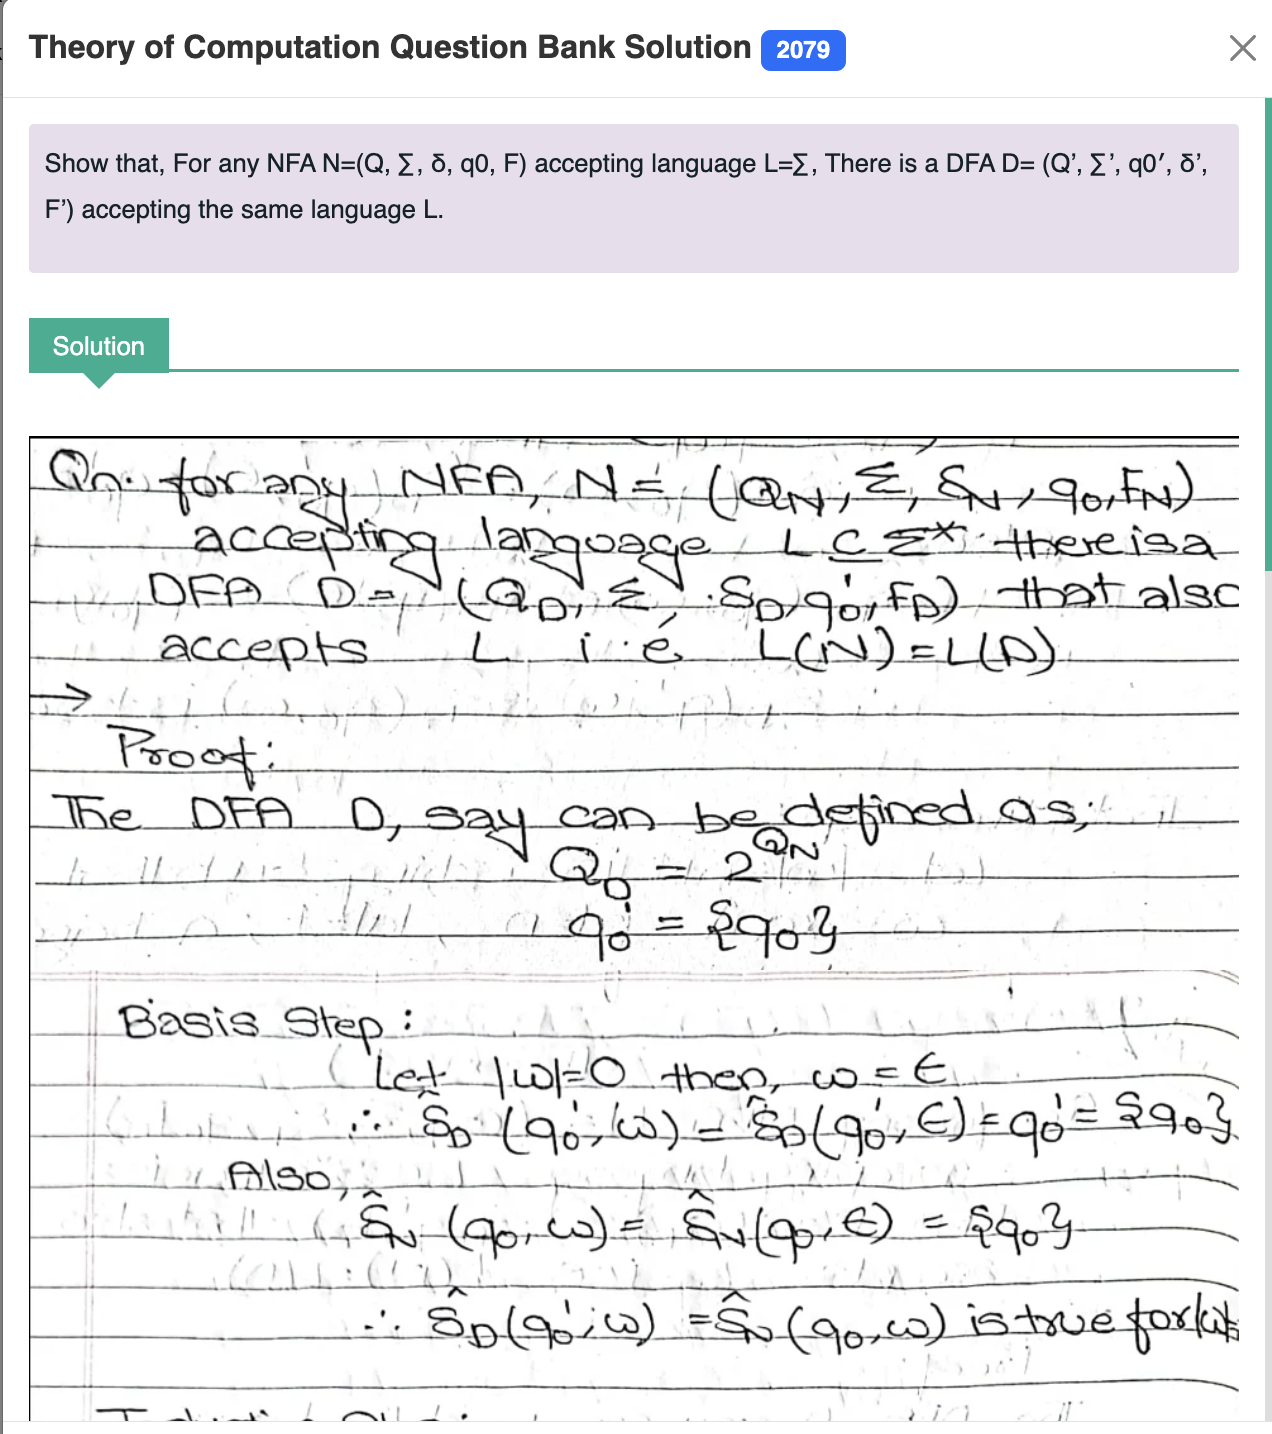 Theory of Computation Question Bank Solution 2079
Show that, For any NFA N=(Q, ∑, δ, q0, F) accepting language L=∑, There is a DFA D= (Q’, ∑’, q0′, δ’,
F’) accepting the same language L.
Solution
Qn. for any NFA, N = (Q_N, Σ, δ_N, q₀, F_N)
accepting language L ⊆ Σ* there is a
DFA D = (Q_D, Σ, δ_D, q₀', F_D) that also
accepts L i.e L(N) = L(D).
→
Proof:
The DFA D, say can be defined as;
Q_D = 2^Q_N
q₀' = {q₀}
Basis Step:
Let |w|=0 then, w = ∈
∴ δ̂_D (q₀', w) = δ̂_D (q₀', ∈) = q₀' = {q₀}
Also,
δ̂_N (q₀, w) = δ̂_N (q₀, ∈) = {q₀}
∴ δ̂_D (q₀', w) = δ̂_N (q₀, w) is true for